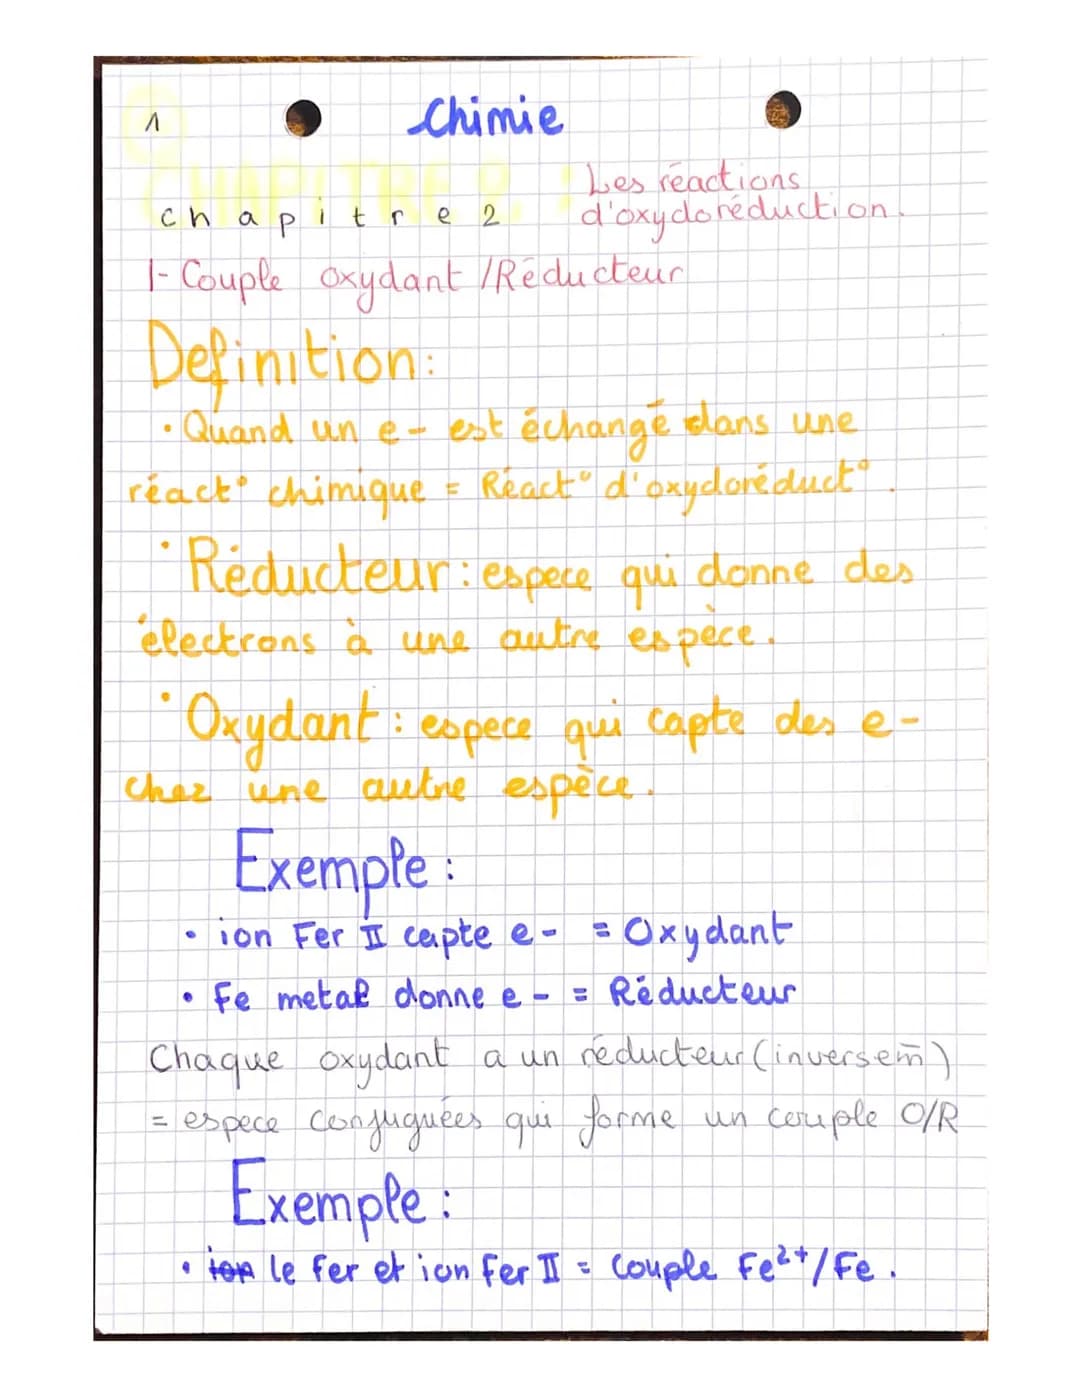 1
Chimie
chapitre 2
Les réactions
d'oxydoréduction.
1- Couple oxydant /Réducteur
Definition:
• Quand un e- est échangé dans une
réact° chimique = Réact° d'oxydoréduct°.
• Réducteur : espece qui donne des
électrons à une autre espèce.
• Oxydant : espece qui capte des e-
chez une autre espèce.
Exemple :
• ion Fer II capte e- = Oxydant
• Fe metal donne e- = Réducteur
Chaque oxydant a un réducteur (inversem̄)
= espece conjuguées qui forme un couple O/R
Exemple :
• ion le Fer et ion Fer II = Couple Fe²⁺/Fe.